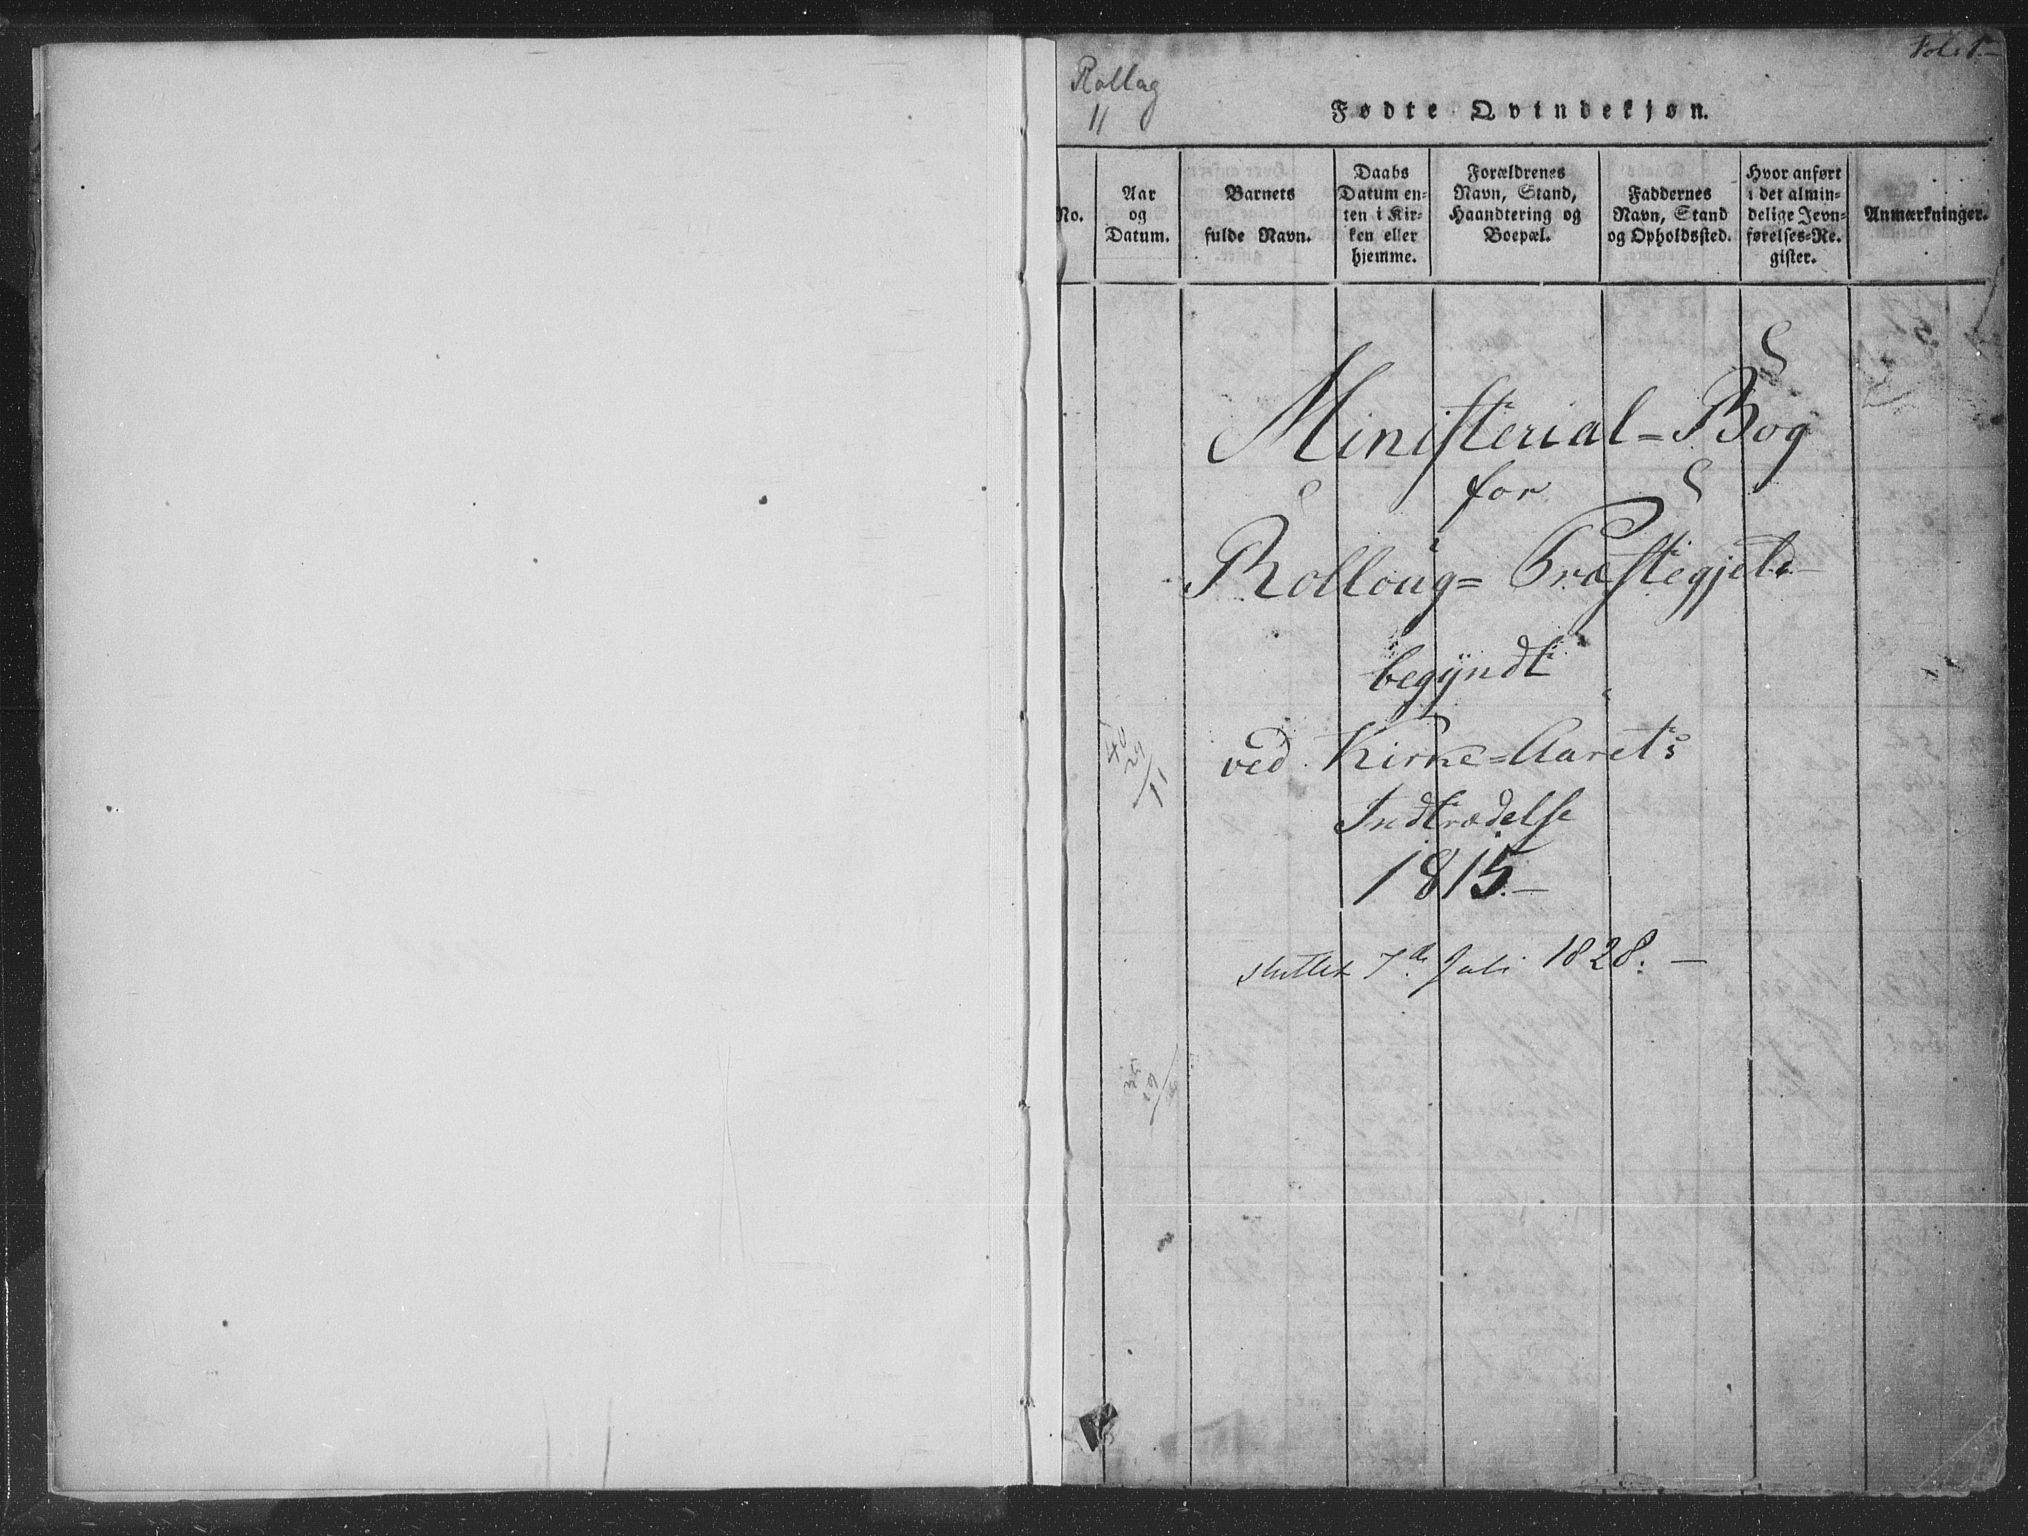 Fol. 1.
Rollag
11
Fødte Qvindekjøn.
No.
Aar
og
Datum.
Barnets
fulde Navn.
Daabs
Datum en-
ten i Kir-
ken eller
hjemme.
Forældrenes
Navn, Stand,
Haandtering og
Boepæl.
Faddernes
Navn, Stand
og Opholdssted.
Hvor anført
i det almin-
delige Jevn-
førelses-Re-
gister.
Anmærkninger.
Ministerial=Bog
for
Rolloug= Præstegjeld
begÿndt
ved Kirke=Aarets
Indtrædelse
1815.
sluttet 7de Juli 1828.